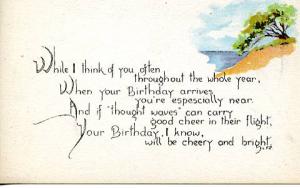 While I think of you often,
throughout the whole year,
When your Birthday arrives
you're espescially near.
And if "thought waves" can carry
good cheer in their flight,
Your Birthday, I know,
will be cheery and bright.